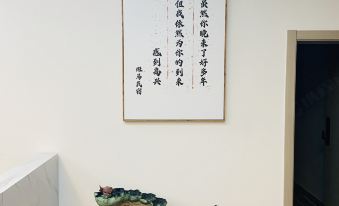 虽然你晚来了好多年
但我依然为你的到来
感到高兴